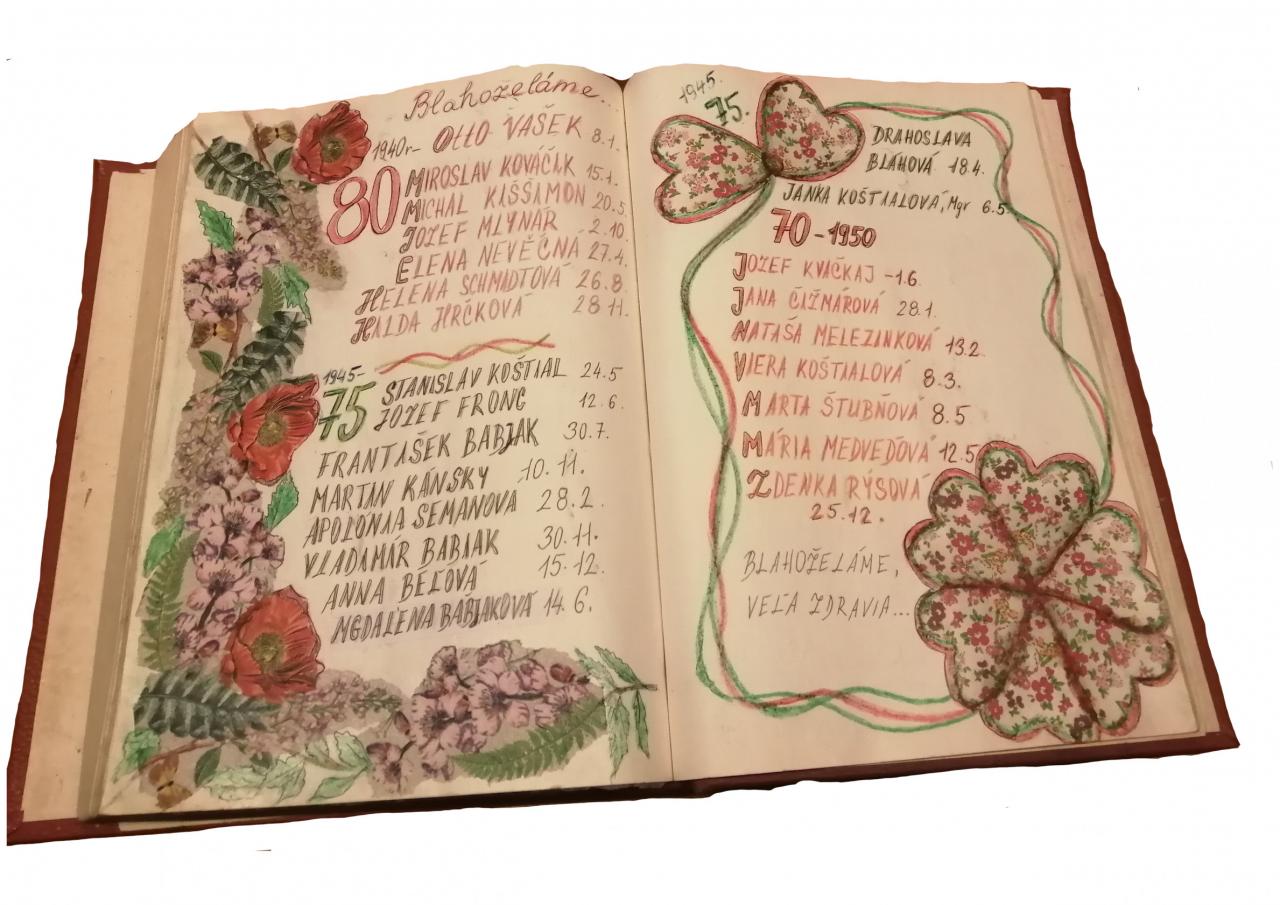 Blahoželáme...
1940r- Otto VAŠEK 8.1.
80 MIROSLAV KOVÁČIK 15.1.
MICHAL KIŠŠIMON 20.5.
JOZEF MLYNÁR 2.10.
ELENA NEVĚČNÁ 27.4.
HELENA SCHMIDTOVÁ 26.8.
HILDA HRČKOVÁ 28 11.
1945-
75 STANISLAV KOŠTIAL 24.5
JOZEF FRONC 12.6.
FRANTIŠEK BABJAK 30.7.
MARTIN KÁNSKY 10.11.
APOLÓNIA SEMANOVÁ 28.2.
VLADIMÍR BABIAK 30.11.
ANNA BEĽOVÁ 15.12.
MGDALÉNA BABJAKOVÁ 14.6.
1945.
75.
DRAHOSLAVA
BLÁHOVÁ 18.4.
JANKA KOŠTIALOVÁ, Mgr 6.5.
70-1950
JOZEF KVAČKAJ -1.6.
JANA ČIŽMÁROVÁ 28.1.
NATAŠA MELEZINKOVÁ 13.2
VIERA KOŠTIALOVÁ 8.3.
MARTA ŠTUBŇOVÁ 8.5
MÁRIA MEDVEĎOVÁ 12.5
ZDENKA RÝSOVÁ
25.12.
BLAHOŽELÁME,
VEĽA ZDRAVIA...